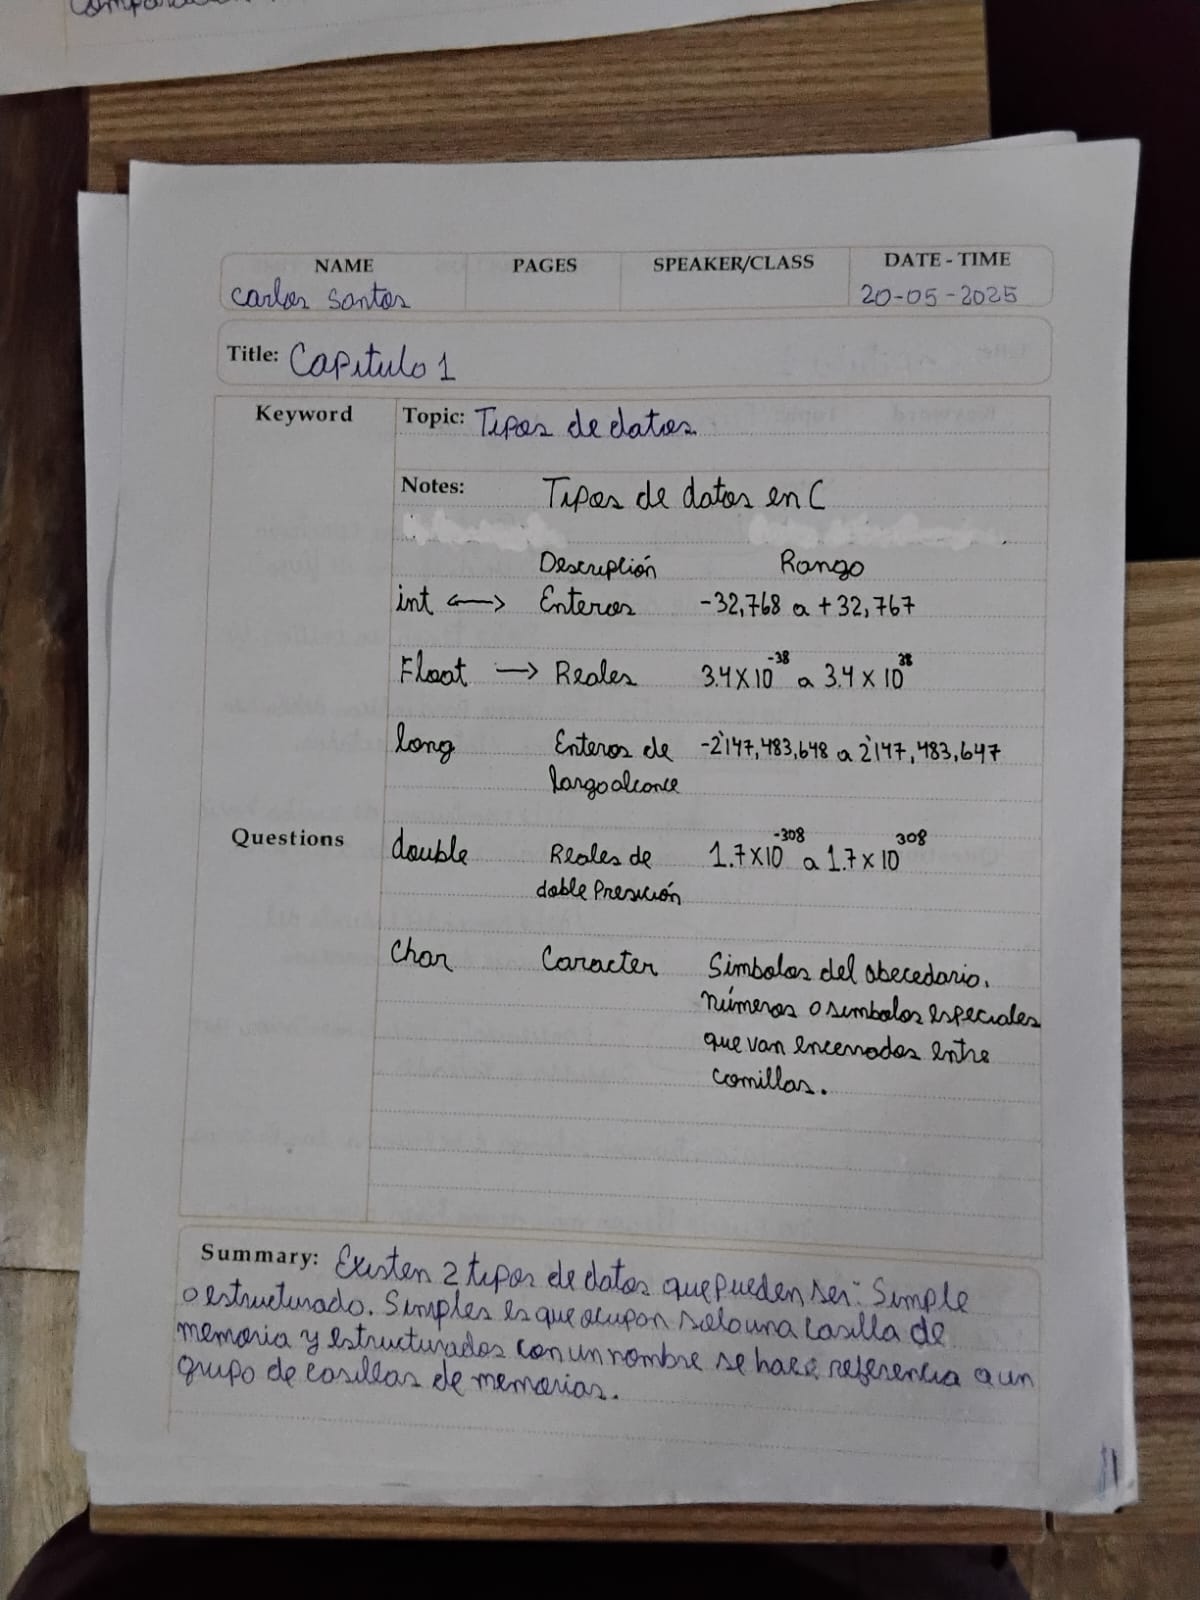 NAME PAGES SPEAKER/CLASS DATE - TIME
Carlos Santos 20-05-2025
Title: Capitulo 1
Keyword Topic: Tipos de datos
Notes: Tipos de datos en C
Descripción Rango
int <—> Enteros -32,768 a +32,767
Float —> Reales 3.4 X 10^-38 a 3.4 X 10^38
long Enteros de -2'147,483,648 a 2'147,483,647
largo alcance
Questions double Reales de 1.7 X 10^-308 a 1.7 X 10^308
doble Presición
Char Caracter Simbolos del abecedario,
números o simbolos especiales
que van encerrados entre
comillas.
Summary: Existen 2 tipos de datos que pueden ser: Simple
o estructurado. Simples es que ocupan solo una casilla de
memoria y estructurados con un nombre se hace referencia a un
grupo de casillas de memorias.